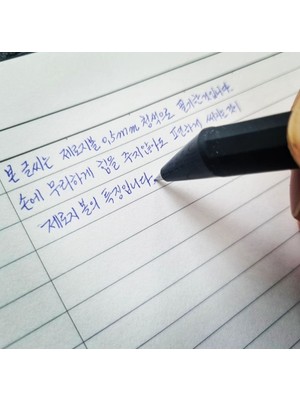 본 글씨는 제로지볼 0,5mm 청색으로 필기한것입니다
손에 무리하게 힘을 주지않아도 편하게 써지는 것이
제로지 볼의 특징입니다.